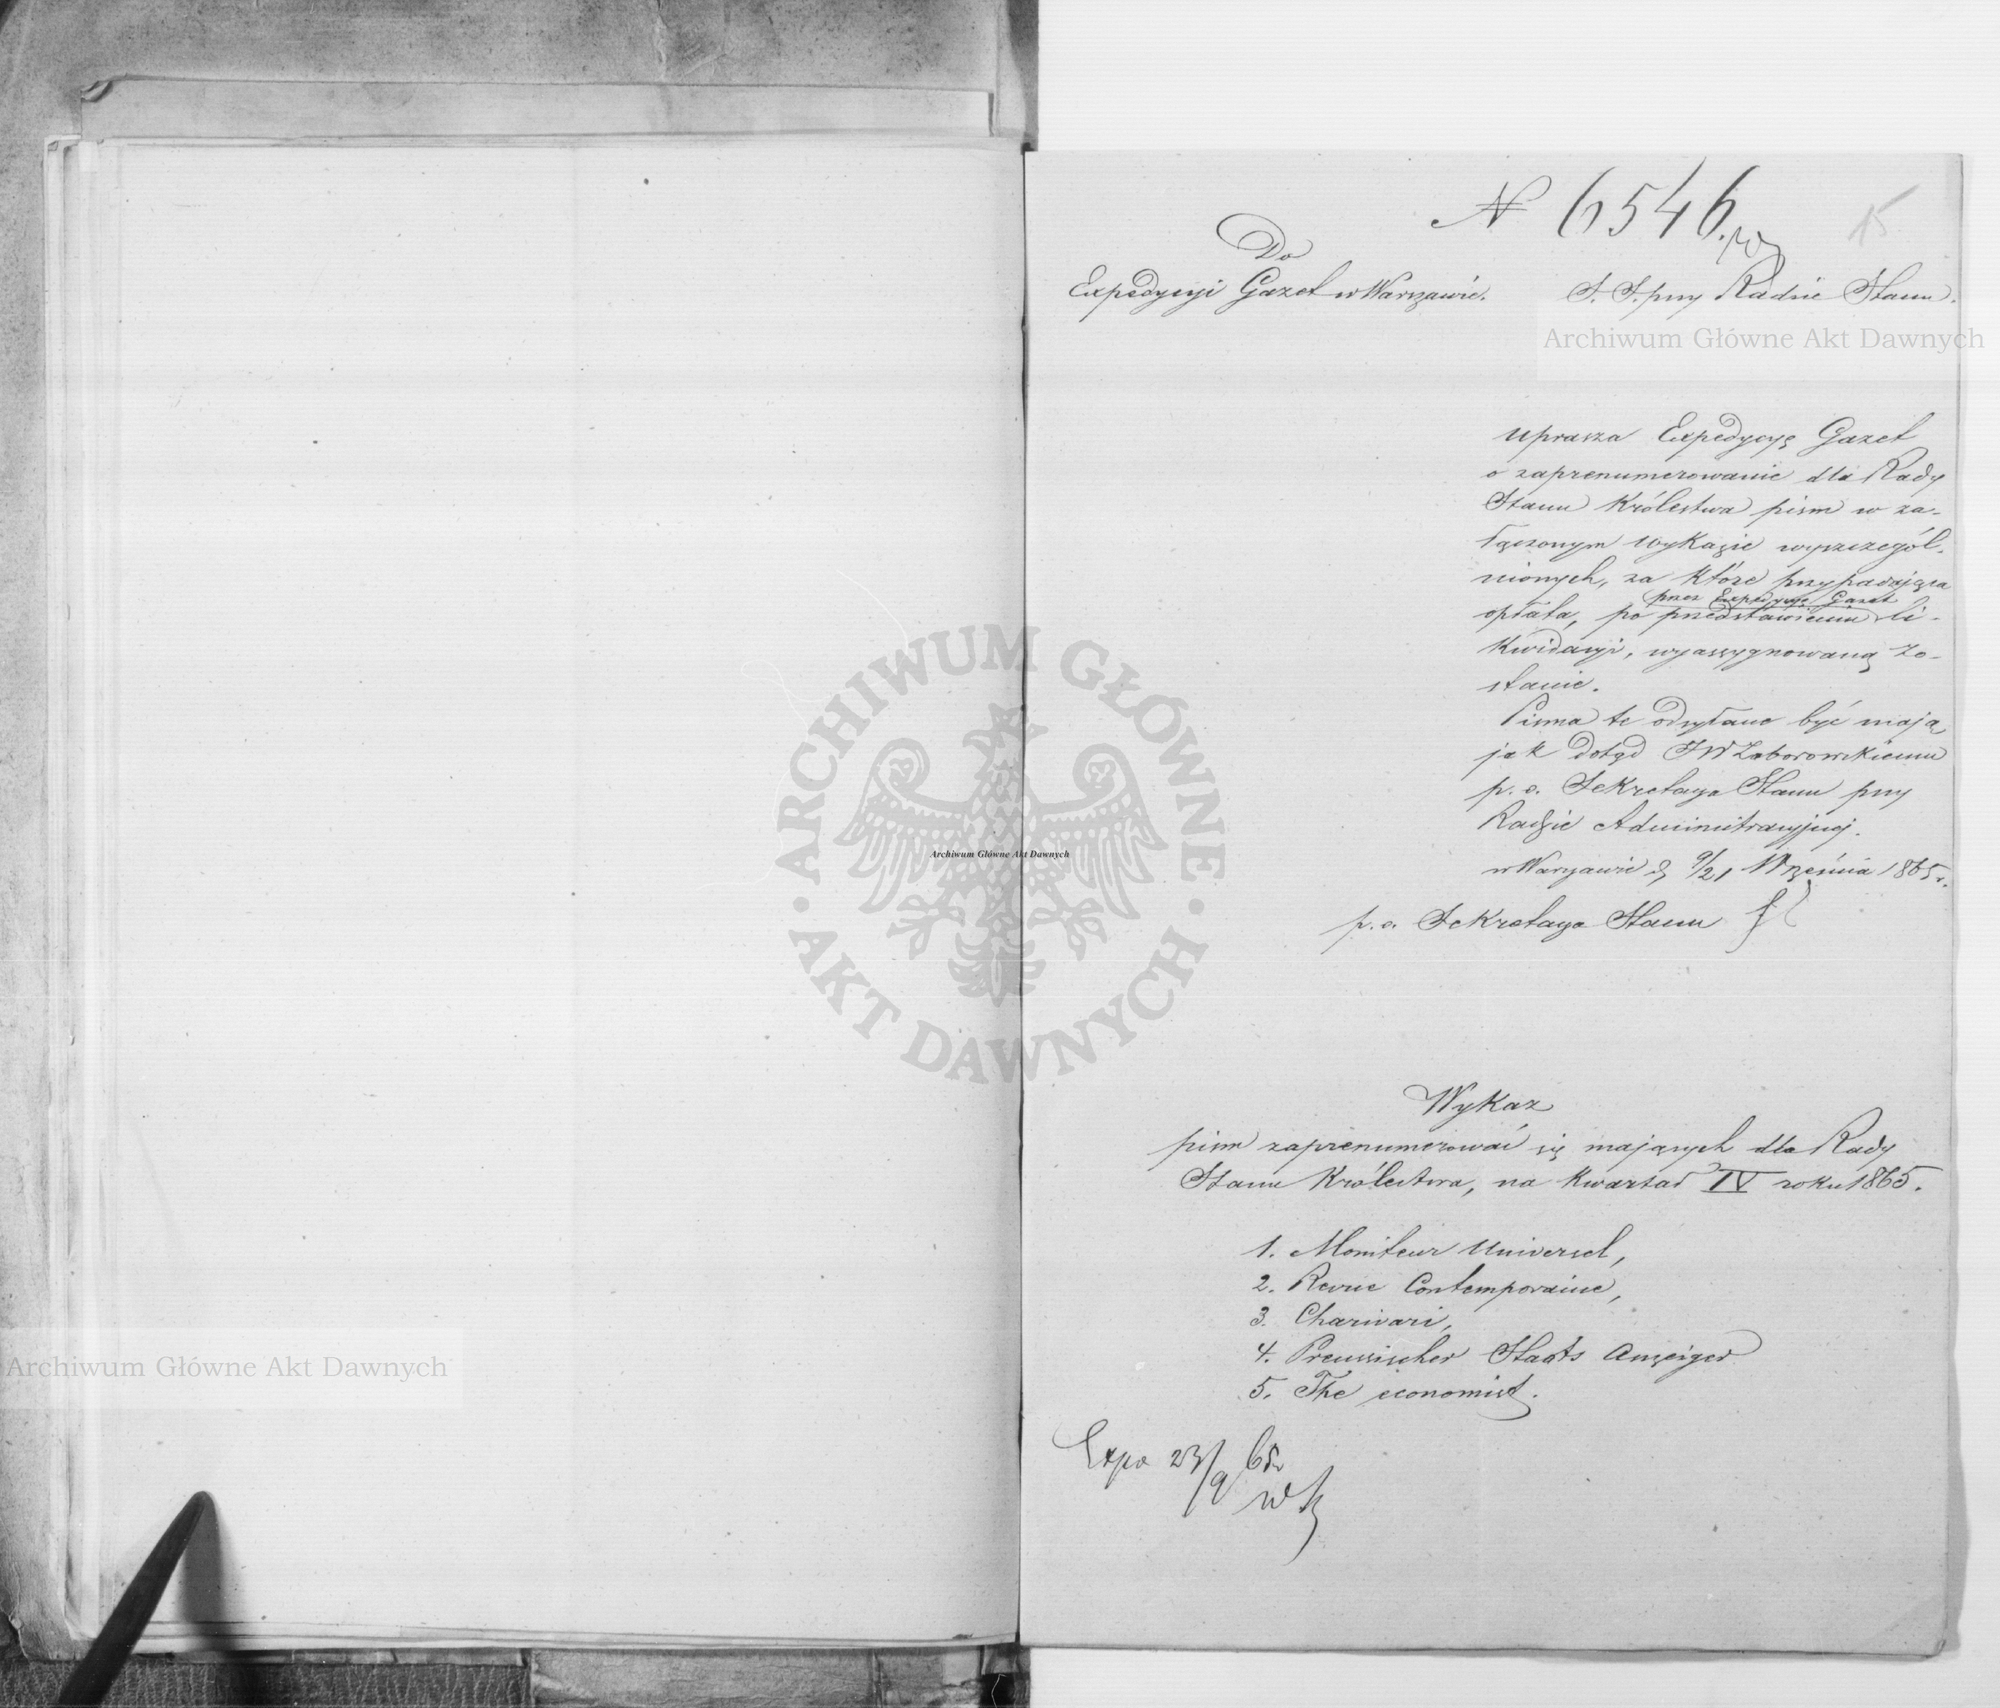 N 6546.
15
Do
Expedycyi Gazet w Warszawie.
S. S. przy Radzie Stanu.
Uprasza Expedycyę Gazet
o zaprenumerowanie dla Rady
Stanu Królestwa pism w za-
łączonym wykazie wyszczegól-
nionych, za które przypadająca
przez Expedycyę Gazet
opłata, po przedstawieniu li-
kwidacyi, wyassygnowaną zo-
stanie.
Pisma te odsyłane być mają
jak dotąd JW Zaborowskiemu
p. o. Sekretarza Stanu przy
Radzie Administracyjnej.
w Warszawie d. 9/21 Września 1865 r.
p. o. Sekretarza Stanu
Wykaz
pism zaprenumerować się mających dla Rady
Stanu Królestwa, na Kwartał IV roku 1865.
1. Moniteur Universel,
2. Revue Contemporaine,
3. Charivari,
4. Preussischer Staats Anzeiger
5. The economist.
Expo 23/9 65
Archiwum Główne Akt Dawnych
Archiwum Główne Akt Dawnych
Archiwum Główne Akt Dawnych
ARCHIWUM GŁÓWNE
AKT DAWNYCH